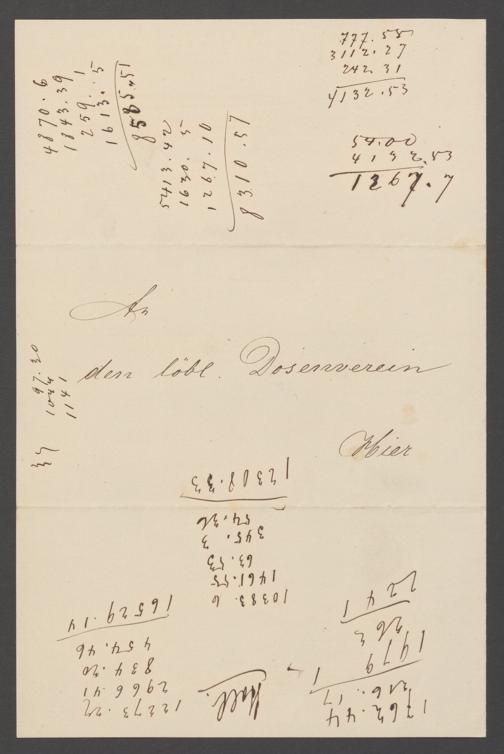 777.55
3112.27
242.31
4132.53
54.00
4132.53
1267.7
4870.6
1843.39
259.1
1613.5
8585.51
5413.42
1630.5
1267.10
8310.57
An
den löbl. Dosenverein
Hier
97.20
1044
1141
37
10383.6
1461.55
63.53
345.3
54.36
12308.33
12273.27
2966.41
834.20
454.46
16529.14
1762.44
216.17
1979
262
2241